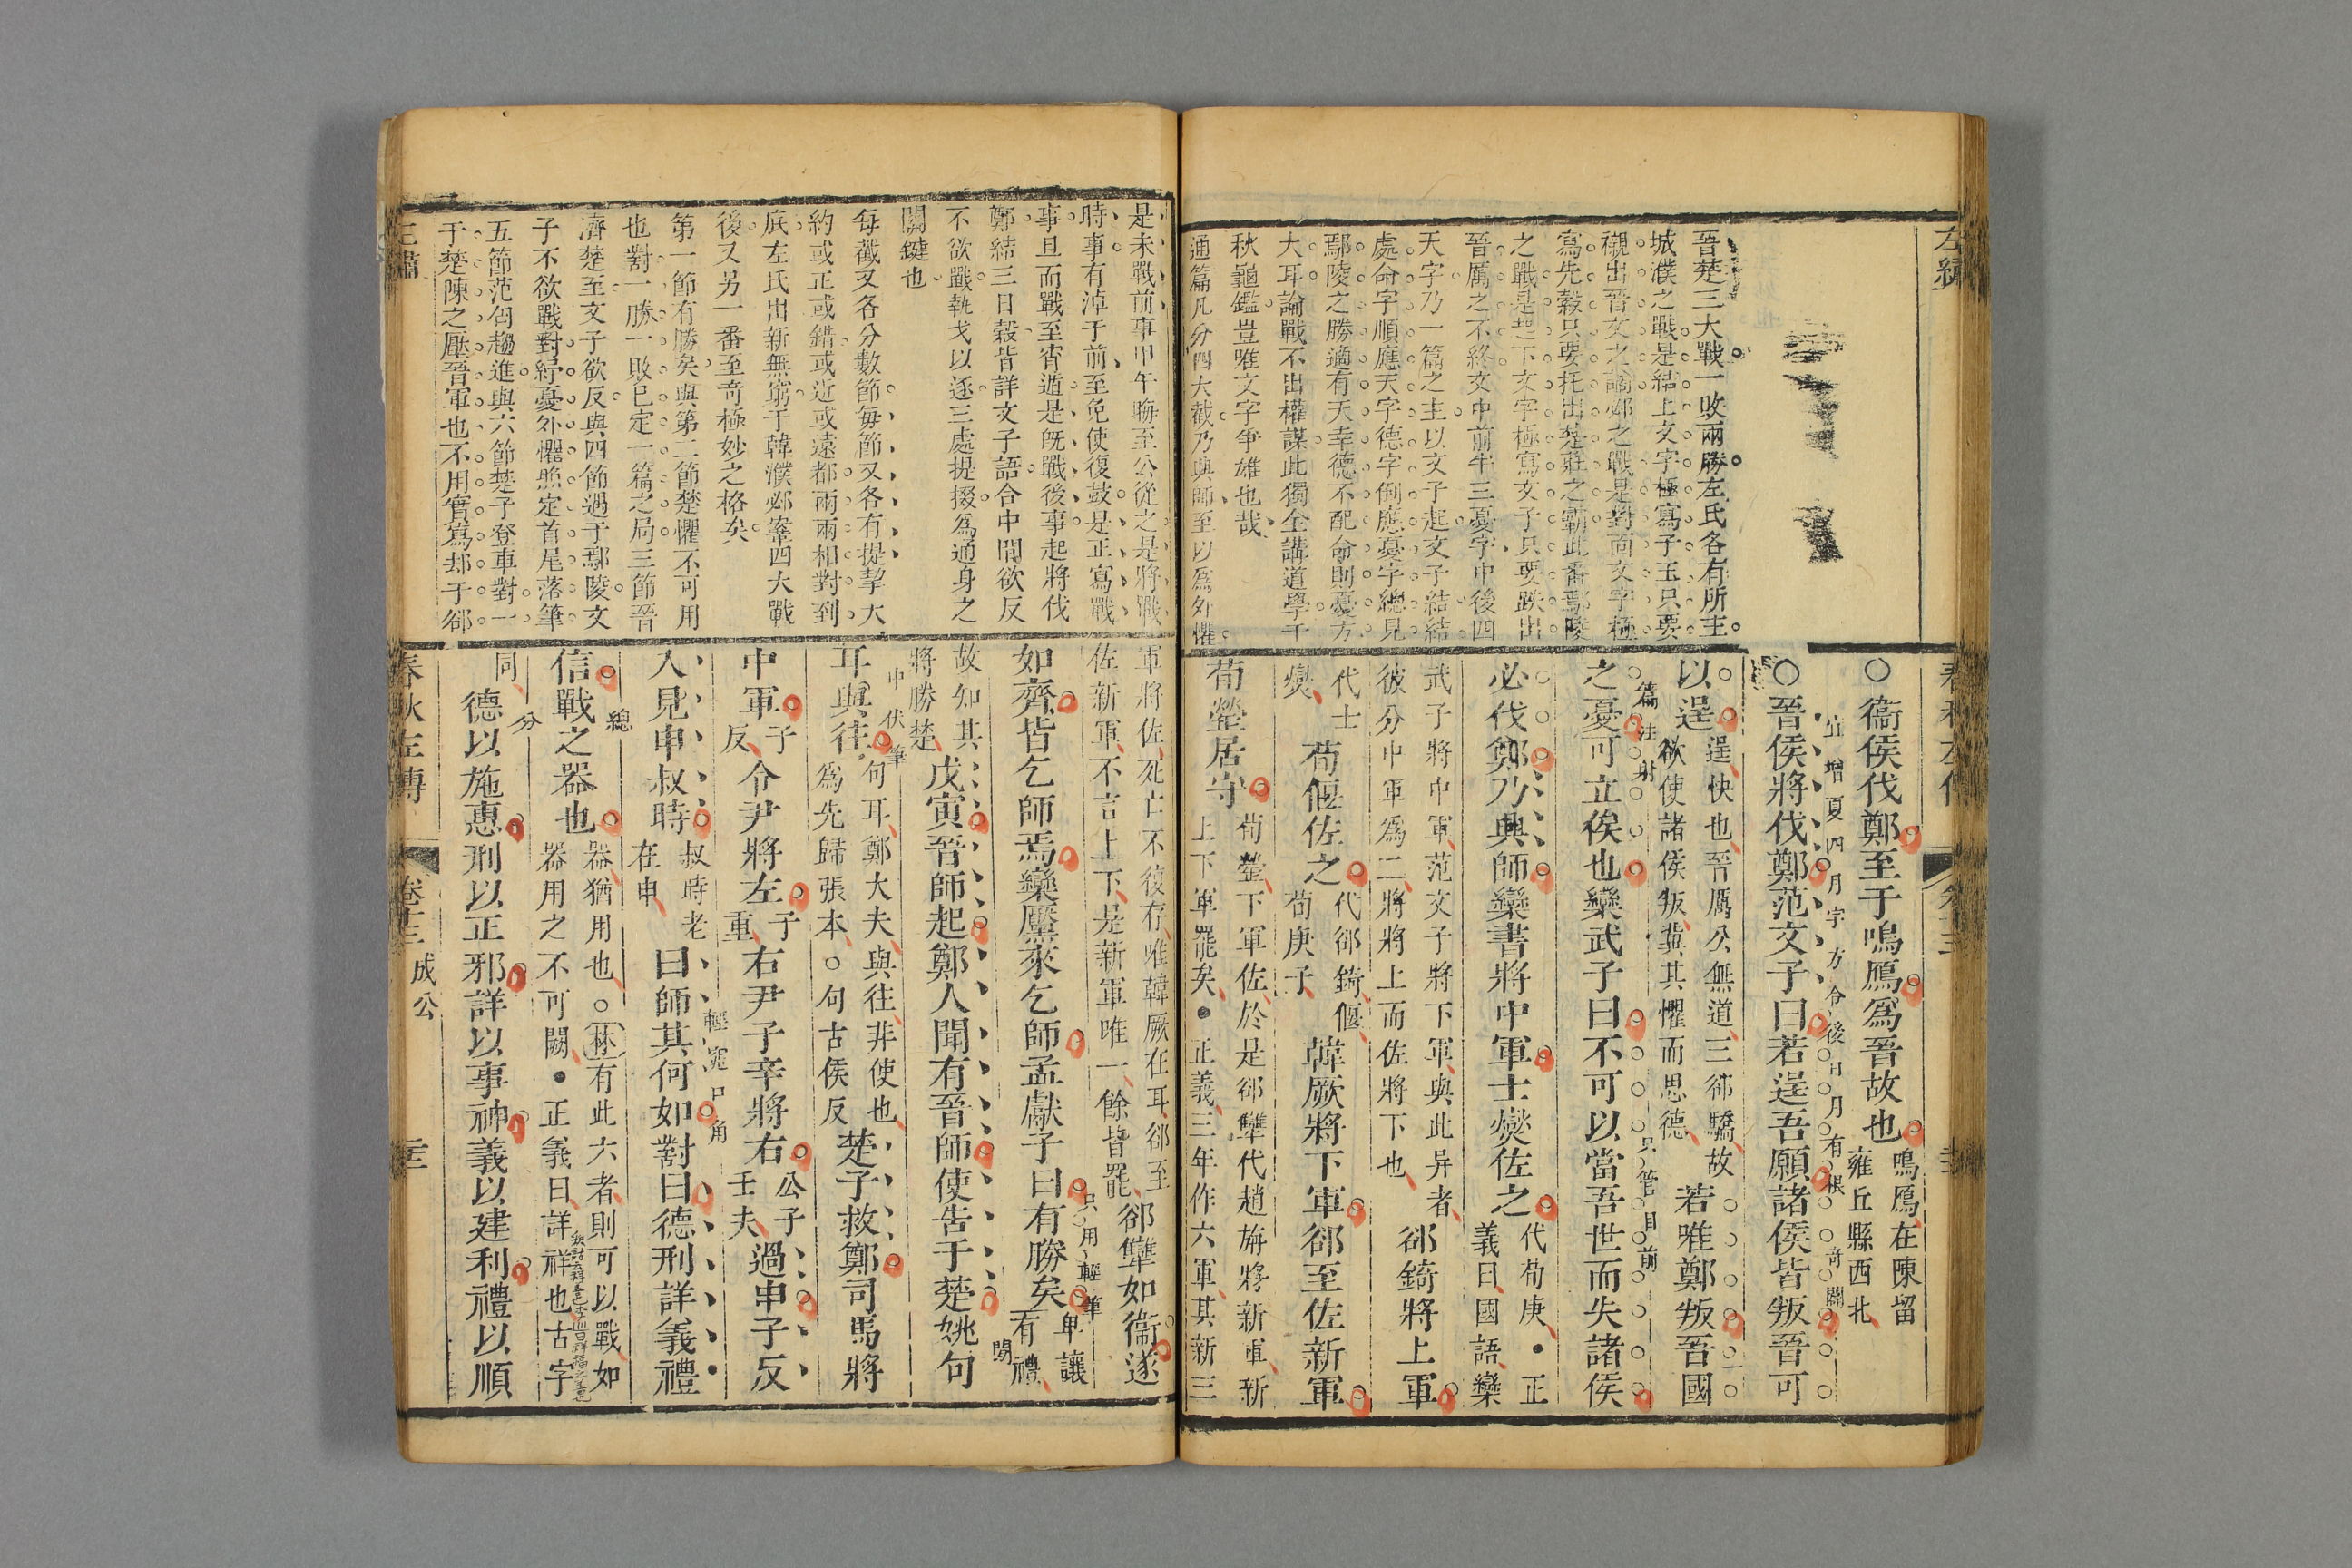 左繡
晉楚三大戰一敗兩勝左氏各有所主
城濮之戰是結上文字極寫子玉只要
襯出晉文之譎邲之戰是對面文字極
寫先縠只要托出楚莊之霸此番鄢陵
之戰是起下文字極寫文子只要跌出
晉厲之不終文中前半三憂字中後四
天字乃一篇之主以文子起文子結結
處命字順應天字德字倒應憂字總見
鄢陵之勝適有天幸德不配命則憂方
大耳論戰不出權謀此獨全講道學千
秋龜鑑豈唯文字爭雄也哉
通篇凡分四大截乃與師至以為外懼
春秋左傳
卷十三
○衞侯伐鄭至于鳴鴈為晉故也
鳴鴈在陳留
雍丘縣西北
宜增夏四月字方令後日月有根
奇闢
○晉侯將伐鄭范文子曰若逞吾願諸侯皆叛晉可
以逞
逞快也晉厲公無道三郤驕故
欲使諸侯叛冀其懼而思德
若唯鄭叛晉國
篇注射
只管目前
之憂可立俟也欒武子曰不可以當吾世而失諸侯
必伐鄭乃興師欒書將中軍士燮佐之
代荀庚・正
義曰國語欒
武子將中軍范文子將下軍與此异者
彼分中軍為二將將上而佐將下也
郤錡將上軍
代士
燮
荀偃佐之
代郤錡偃
荀庚子
韓厥將下軍郤至佐新軍
荀罃居守
荀罃下軍佐於是郤犨代趙旃將新軍新
上下軍罷矣・正義三年作六軍其新三
是未戰前事甲午晦至公從之是將戰
時事有淖于前至免使復鼓是正寫戰
事旦而戰至宵遁是既戰後事起將伐
鄭結三日穀皆詳文子語合中間欲反
不欲戰執戈以逐三處提掇為通身之
關鍵也
每截又各分數節每節又各有提挈大
約或正或錯或近或遠都兩兩相對到
底左氏出新無窮于韓濮邲鞌四大戰
後又另一番至奇極妙之格矣
第一節有勝矣與第二節楚懼不可用
也對一勝一敗已定一篇之局三節晉
濟楚至文子欲反與四節遇于鄢陵文
子不欲戰對紓憂外懼照定首尾落筆
五節范匄趨進與六節楚子登車對一
于楚陳之壓晉軍也不用實寫却于郤
軍將佐死亡不復存唯韓厥在耳郤至
佐新軍不言上下是新軍唯一餘皆罷
郤犨如衞遂
只用輕筆
如齊皆乞師焉欒黶來乞師孟獻子曰有勝矣
卑讓
有禮
故知其
將勝楚
戊寅晉師起鄭人聞有晉師使告于楚姚句
中伏筆
耳與往
句耳鄭大夫與往非使也
為先歸張本○句古侯反
楚子救鄭司馬將
中軍
子
反
令尹將左
子
重
右尹子辛將右
公子
壬夫
過申子反
入見申叔時
叔時老
在申
曰師其何如對曰德刑詳義禮
輕宛口角
信戰之器也
總
器猶用也○林有此六者則可以戰如
器用之不可闕・正義曰詳祥也古字
同
分
德以施惠刑以正邪詳以事神義以建利禮以順
春秋左傳
卷十三
成公